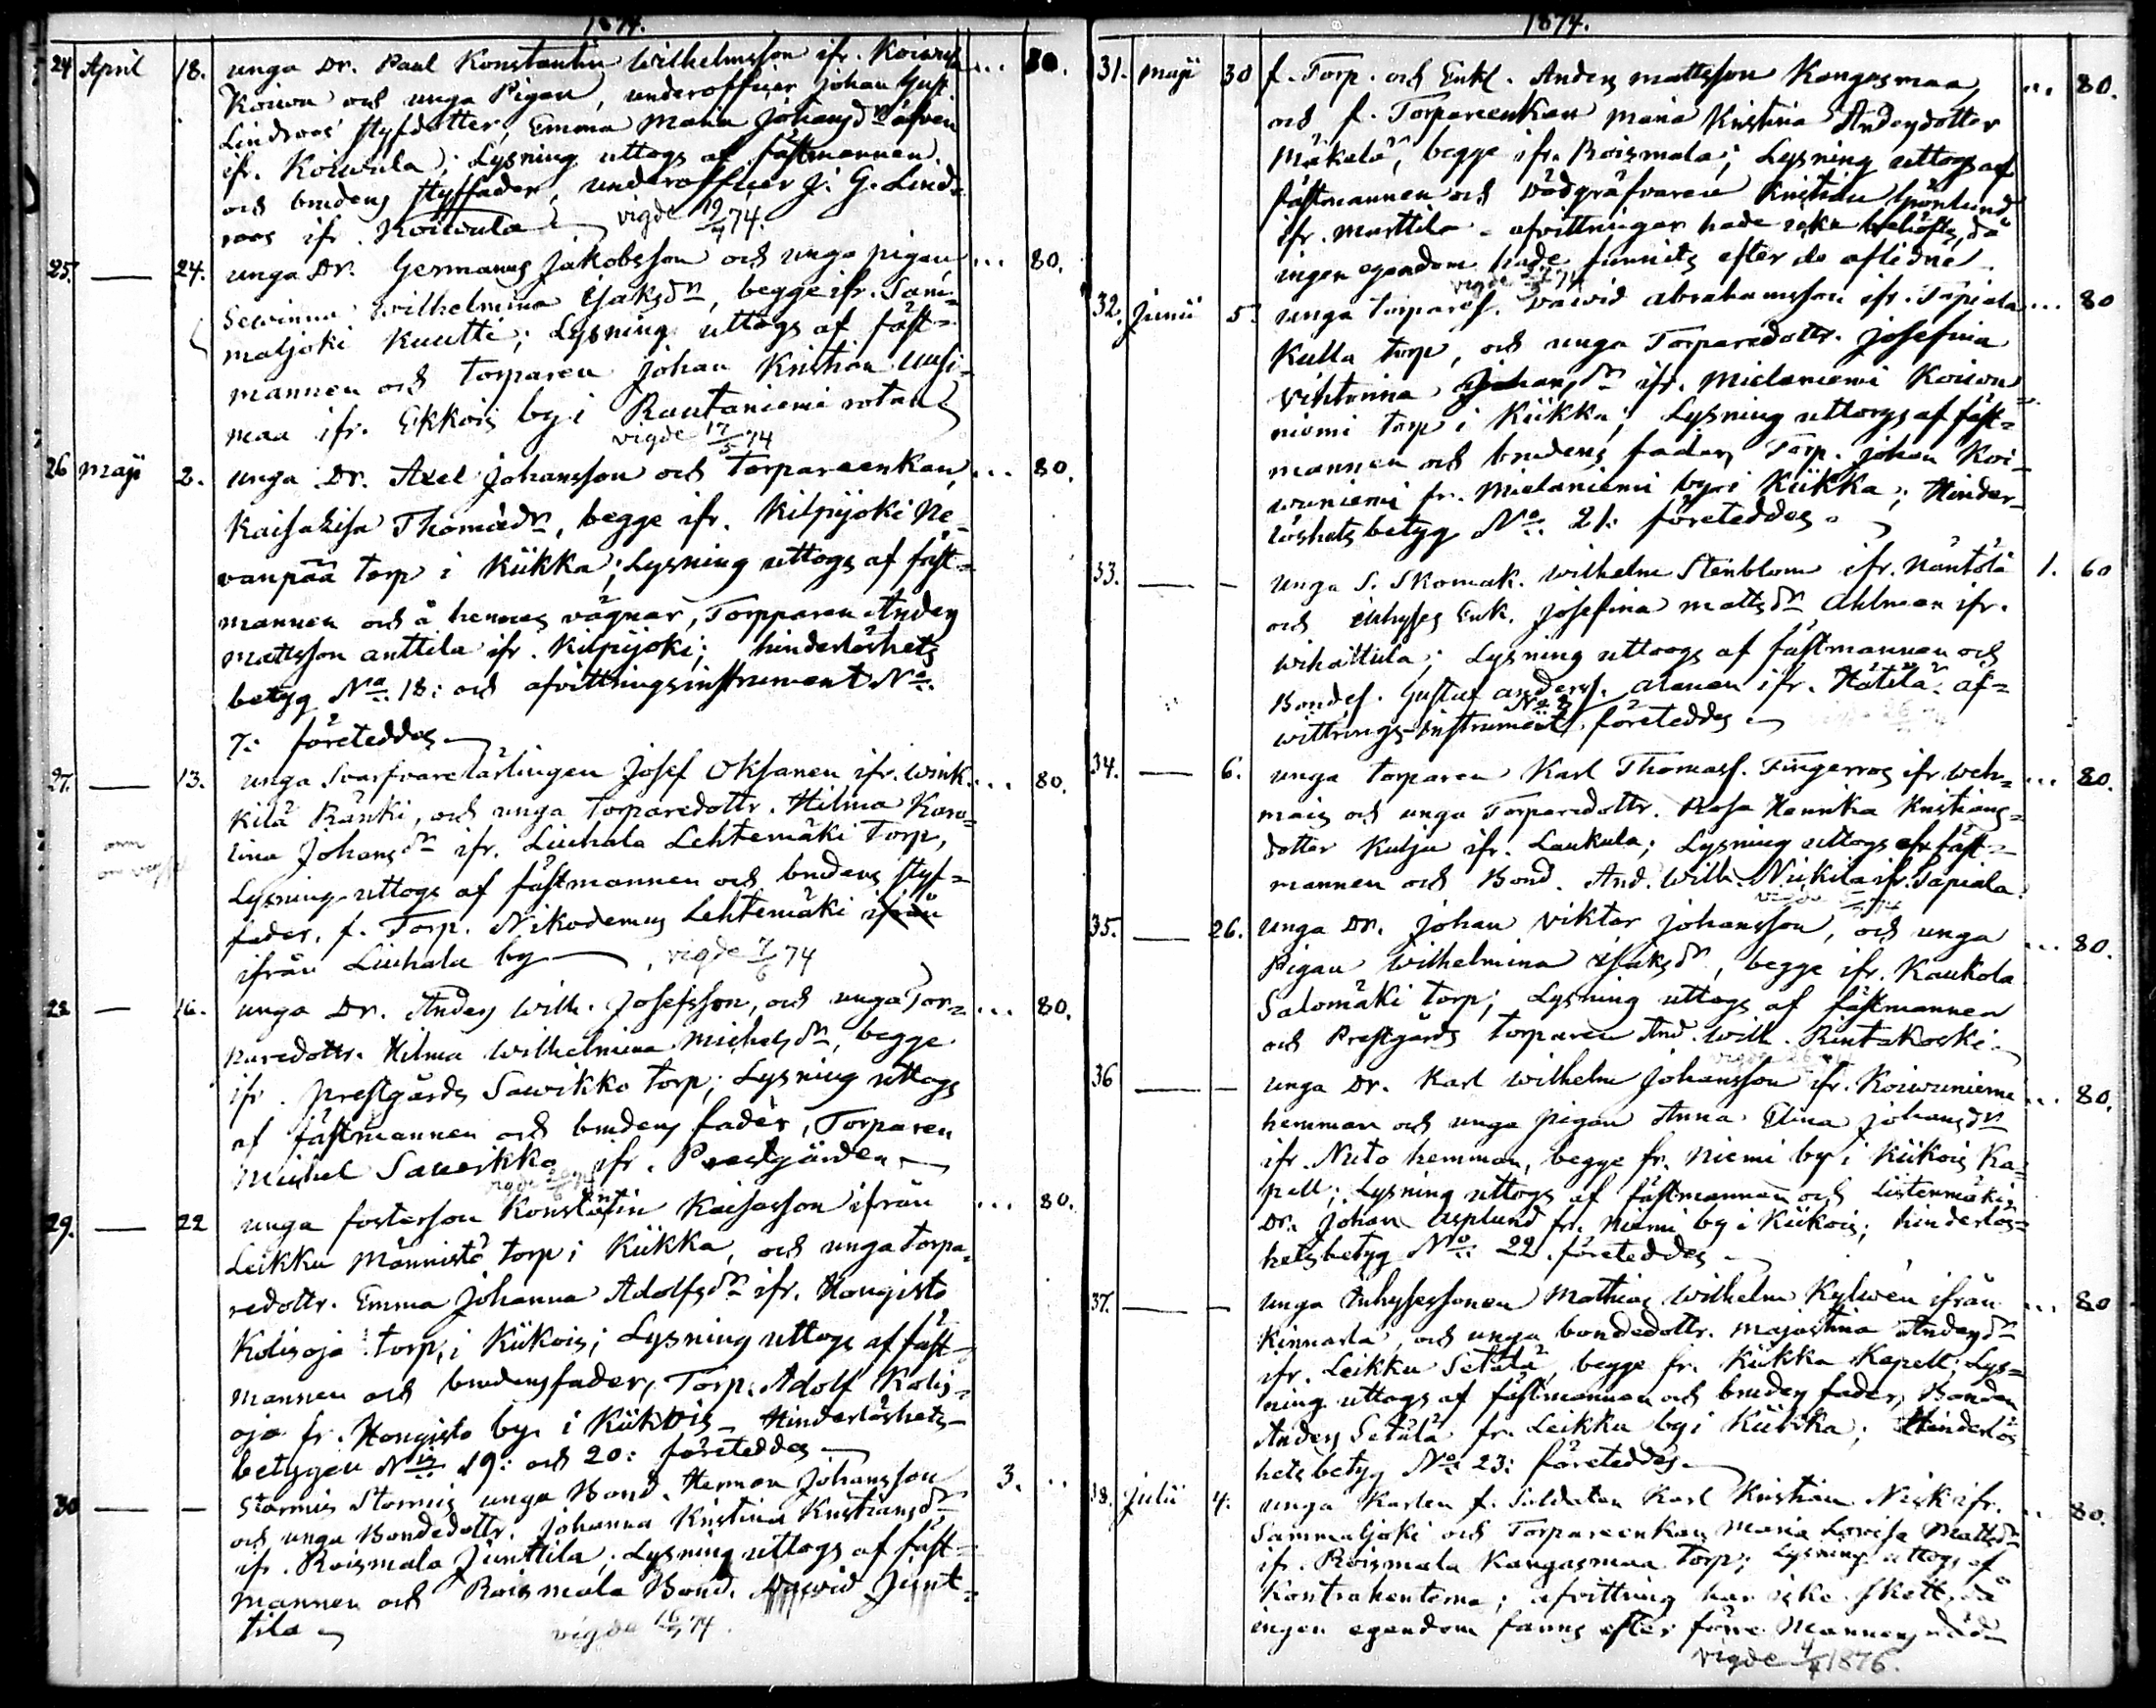 1874.
24 April 18. unga Dr. Paul Konstantin Wilhelmsson ifr. Koiwula ... 80.
Koiwu och unga Pigan, underofficer Johan Gust.
Lindroos' styfdotter, Emma Maria Johansdr äfven
ifr. Koiwula; Lysning uttogs af fästmannen
och brudens styffader, underofficer J. G. Lind-
roos ifr. Koiwula vigde 19/7 74.
25. — 24. unga Dr. Germanus Jakobsson och unga pigan ... 80.
Sewinna Wilhelmina Isaksdr, begge ifr. Sam-
maljoki Kuutti; Lysning uttogs af fäst-
mannen och torparen Johan Kristian Uusi-
maa ifr. Ekkois by i Rautaniemi rotan
vigde 17/5 74
26 Maji 2. unga Dr. Axel Johansson och Torpareenkan, ... 80.
Kaisa Lisa Thomædr, begge ifr. Kilpijoki Ne-
vanpää torp i Kiikka; Lysning uttogs af fäst-
mannen och å hennes vägnar, Torpparen Anders
Mattsson Anttila ifr. Kilpijoki; hinderlöshets
betyg No 18: och afvittringsinstrument No
7: företeddes
27. — 13. unga Svarfvarelärlingen Josef Oksanen ifr. Wink- ... 80.
kilä Ränki, och unga torparedottr. Hilma Karo-
lina Johansdr ifr. Liuhala Lehtemäki Torp,
Lysning uttogs af fästmannen och brudens styf-
fader, f. Torp. Nikodemus Lehtemäki ifrån
ifrån Liuhala by vigde 7/6 74
28 — 16. unga Dr. Anders Wilh. Josefsson, och unga Tor- ... 80.
paredottr. Hilma Wilhelmina Michelsdr, begge
ifr. prestgårds Sawikko torp; Lysning uttogs
af fästmannen och brudens fader, Torparen
Michel Saweikko ifr. Prestgården
29. — 22 unga fosterson Konstantin Kaisasson ifrån ... 80.
Leikku Männistö torp i Kiikka, och unga torpa-
redottr. Emma Johanna Adolfsdr ifr. Hongisto
Kolisoja torp, i Kiikois; Lysning uttogs af fäst-
mannen och brudens fader, Torp. Adolf Kolis-
oja fr. Hongisto by i Kiikois – Hinderlöshets-
betygen No 19: och 20: företeddes
30 — — Stormis Stormis unga Bond. Herman Johansson 3. ..
och unga Bondedottr. Johanna Kristina Kristiansdr
ifr. Roismala Junttila; Lysning uttogs af fäst-
mannen och Roismala Bond. Dawid Junt-
tila vigde 16/ 74.
1874.
31. Maji 30 f. Torp. och Enkl. Anders Mattsson Kangasmaa, ... 80.
och f. Torpareenkan Maria Kristina Andersdotter
Mäkelä, begge ifr. Roismala; Lysning uttogs af
fästmannen och vadgräfvaren Kristian Grönlund
ifr. Marttila – afvittringar hade icke behöfts, då
ingen egendom hade funnits efter de aflidne
32. Junii 5. unga Torparef. Dawid Abrahamsson ifr. Tapiala ... 80
Kulla torp, och unga Torparedottr. Josefina
Vihtorina Johansdr ifr. Mielaniemi Koiwu-
niemi torp i Kiikka; Lysning uttogs af fäst-
mannen och brudens fader, Torp. Johan Koi-
wuniemi fr. Mielaniemi by i Kiikka; Hinder-
löshetsbetyg No 21: företeddes
33. — – unga S. Skomak. Wilhelm Stenblom ifr. Näntölä 1. 60
och inhyses Enk. Josefina Mattsdr Ahlman ifr.
Wihattula; Lysning uttogs af fästmannen och
Bondef. Gustaf Andersf. Alanen ifr. Hätilä. af-
wittrings-instrument företeddes
34. — 6. unga torparen Karl Thomasf. Fingerroos ifr. Weh- ... 80.
mais och unga Torparedottr. Rosa Henrika Kristians-
dotter Kulju ifr. Laukula; Lysning uttogs af fäst-
mannen och Bond. And. Wilh. Niukila ifr. Tapiala
35. — 26. unga Dr. Johan Viktor Johansson, och unga ... 80.
Pigan Wilhelmina Isaksdr, begge ifr. Kaukola
Salomäki torp; Lysning uttogs af fästmannen
och Prestgårds torparen And. Wilh. Rintakoski
36 — – unga Dr. Karl Wilhelm Johansson ifr. Koiwuniemi ... 80.
hemman och unga pigan Anna Elina Johansdr
ifr. Nuto hemman, begge fr. Niemi by i Kiikois Ka-
pell; Lysning uttogs af fästmannen och Listenmäkis
Dr. Johan Asplund fr. Niemi by i Kiikois; hinderlös-
hetsbetyg No 22. företeddes
37. — – unga Inhysessonen Mathias Wilhelm Kylwén ifrån ... 80
Kinnala, och unga bondedottr. Majastina Andersdr
ifr. Leikku Setälä, begge fr. Kiikka Kapell; Lys-
ning uttogs af fästmannen och brudens fader, Bonden
Anders Setälä fr. Leikku by i Kiikka; Hinderlös-
hetsbetyg No 23: företeddes
38. Julii 4. unga Karlen f. Soldaten Karl Kristian Nisk ifr. .. 80.
Sammaljoki och Torpareenkan Maria Lovisa Mattsdr
ifr. Roismala Kangasmaa torp; Lysning uttogs af
Kontrahenterna; afvittring har icke skett, då
ingen egendom fanns efter förre Mannens död
vigde 4/ 1876.